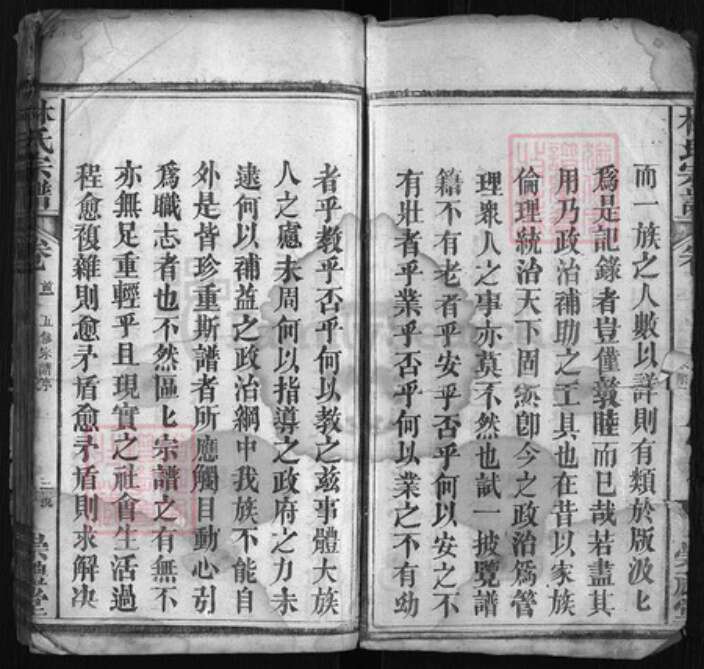 而一族之人數以詳則有類於版波匕
爲是記錄者豈僅敦睦而已哉若盡其
用乃政治補助之工具也在昔以家族
倫理統治天下固然卽今之政治爲管
理衆人之事亦莫不然也試一披覽譜
籍不有老者乎安乎否乎何以安之不
有壯者乎業乎否乎何以業之不有幼
者乎教乎否乎何以教之茲事體大族
人之慮未周何以指導之政府之力未
逮何以補益之政治綱中我族不能自
外是皆珍重斯譜者所應觸目動心引
爲職志者也不然區匕宗譜之有無不
亦無足重輕乎且現實之社會生活過
程愈複雜則愈矛盾愈矛盾則求解决
林氏宗譜
卷首
五修宗譜序
三